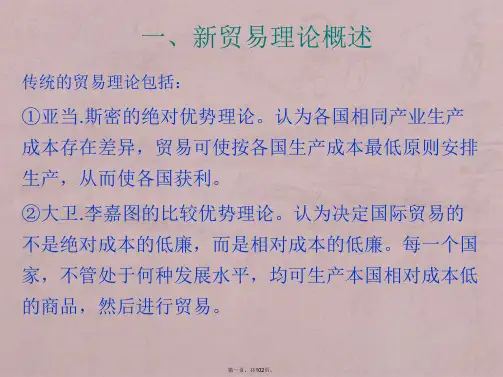 一、新贸易理论概述
传统的贸易理论包括：
①亚当.斯密的绝对优势理论。认为各国相同产业生产
成本存在差异，贸易可使按各国生产成本最低原则安排
生产，从而使各国获利。
②大卫.李嘉图的比较优势理论。认为决定国际贸易的
不是绝对成本的低廉，而是相对成本的低廉。每一个国
家，不管处于何种发展水平，均可生产本国相对成本低
的商品，然后进行贸易。
第一页，共102页。